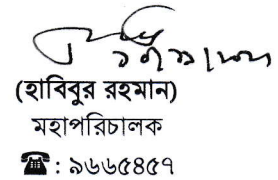 (হাবিবুর রহমান)
মহাপরিচালক
☎ : ৯৬৬৫৪৫৭